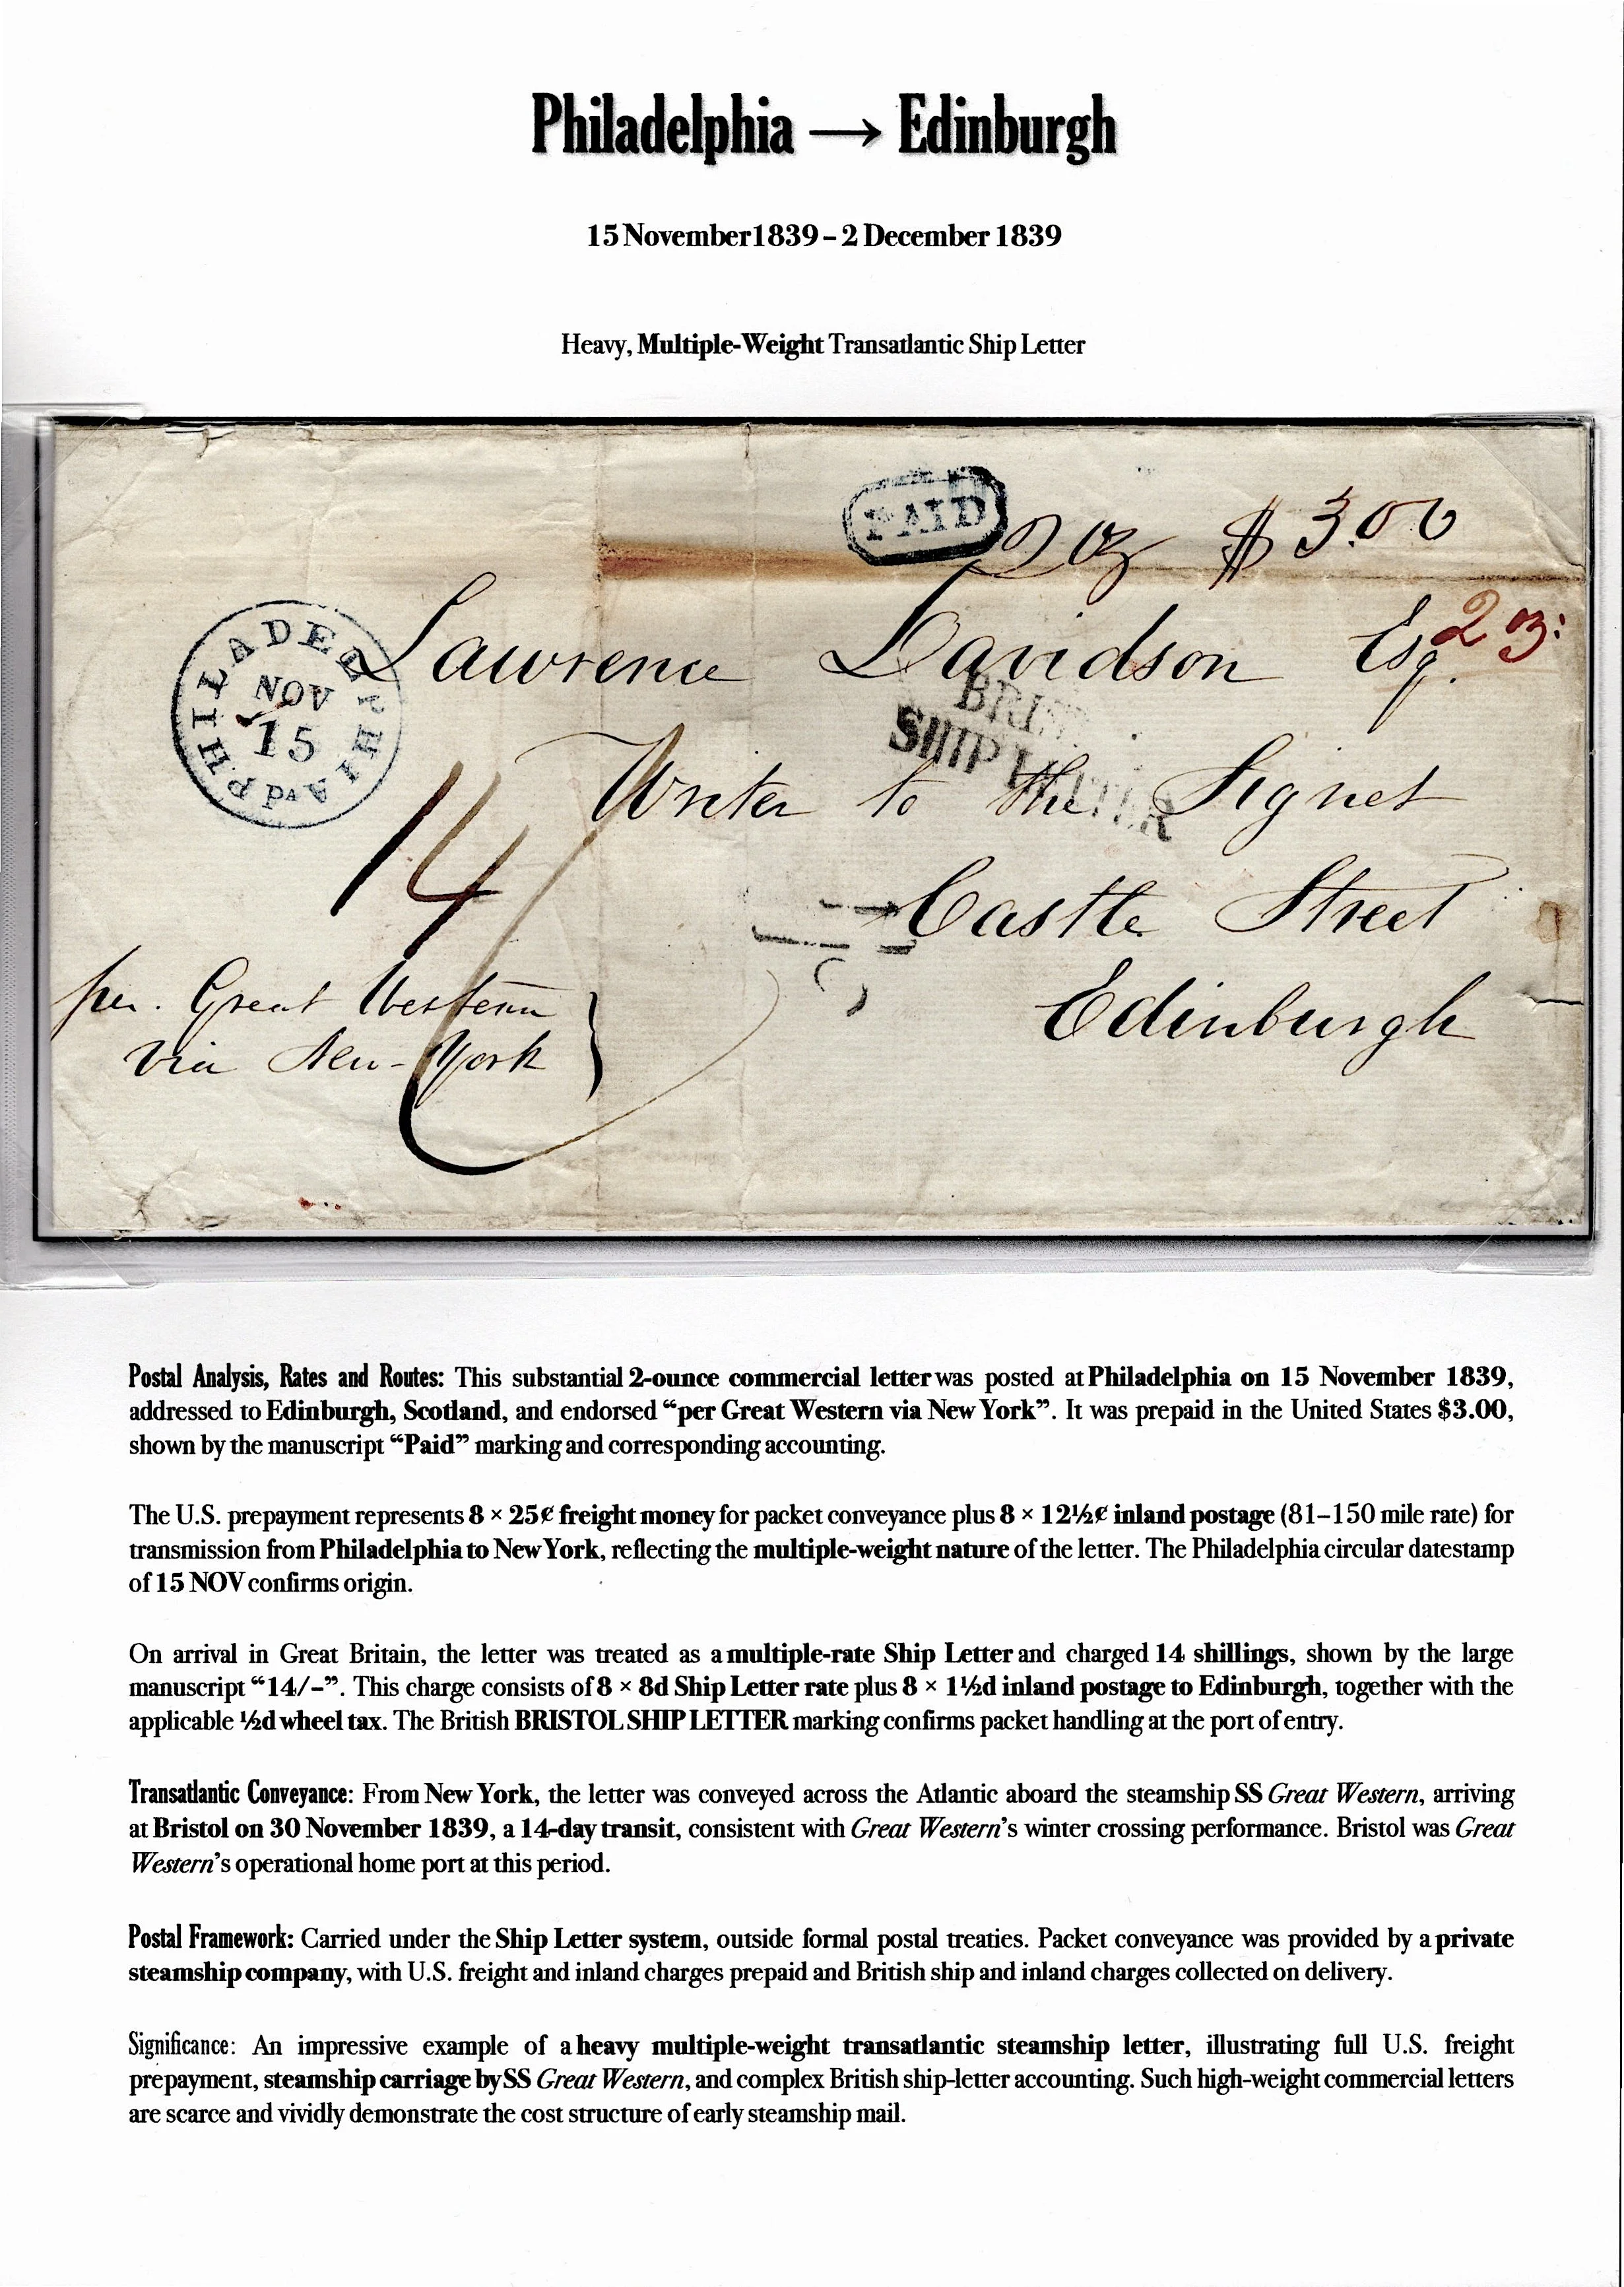 Philadelphia → Edinburgh
15 November 1839 – 2 December 1839
Heavy, Multiple-Weight Transatlantic Ship Letter
PAID
2 oz $ 3.00
2 oz:
PHILADELPHIA Pa
NOV
15
Lawrence Davidson Esq.
BRIS
SHIP LETTER
Writer to the Signet
14/
Castle Street
Edinburgh
per. Great Western
via New-York
Postal Analysis, Rates and Routes: This substantial 2-ounce commercial letter was posted at Philadelphia on 15 November 1839,
addressed to Edinburgh, Scotland, and endorsed “per Great Western via New York”. It was prepaid in the United States $3.00,
shown by the manuscript “Paid” marking and corresponding accounting.
The U.S. prepayment represents 8 × 25¢ freight money for packet conveyance plus 8 × 12½¢ inland postage (81–150 mile rate) for
transmission from Philadelphia to New York, reflecting the multiple-weight nature of the letter. The Philadelphia circular datestamp
of 15 NOV confirms origin.
On arrival in Great Britain, the letter was treated as a multiple-rate Ship Letter and charged 14 shillings, shown by the large
manuscript “14/-”. This charge consists of 8 × 8d Ship Letter rate plus 8 × 1½d inland postage to Edinburgh, together with the
applicable ½d wheel tax. The British BRISTOL SHIP LETTER marking confirms packet handling at the port of entry.
Transatlantic Conveyance: From New York, the letter was conveyed across the Atlantic aboard the steamship SS Great Western, arriving
at Bristol on 30 November 1839, a 14-day transit, consistent with Great Western’s winter crossing performance. Bristol was Great
Western’s operational home port at this period.
Postal Framework: Carried under the Ship Letter system, outside formal postal treaties. Packet conveyance was provided by a private
steamship company, with U.S. freight and inland charges prepaid and British ship and inland charges collected on delivery.
Significance: An impressive example of a heavy multiple-weight transatlantic steamship letter, illustrating full U.S. freight
prepayment, steamship carriage by SS Great Western, and complex British ship-letter accounting. Such high-weight commercial letters
are scarce and vividly demonstrate the cost structure of early steamship mail.